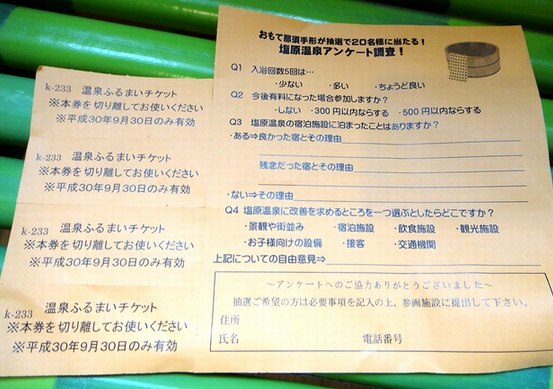 k-233 温泉ふるまいチケット
※本券を切り離してお使いください
※平成30年9月30日のみ有効
k-233 温泉ふるまいチケット
※本券を切り離してお使いください
※平成30年9月30日のみ有効
k-233 温泉ふるまいチケット
※本券を切り離してお使いください
※平成30年9月30日のみ有効
k-233 温泉ふるまいチケット
※本券を切り離してお使いください
※平成30年9月30日のみ有効
おもて那須手形が抽選で20名様に当たる!
塩原温泉アンケート調査!
Q1 入浴回数5回は…
・少ない ・多い ・ちょうど良い
Q2 今後有料になった場合参加しますか?
・しない ・300円以内ならする ・500円以内ならする
Q3 塩原温泉の宿泊施設に泊まったことはありますか?
・ある⇒良かった宿とその理由
残念だった宿とその理由
・ない⇒その理由
Q4 塩原温泉に改善を求めるところを一つ選ぶとしたらどこですか?
・景観や街並み ・宿泊施設 ・飲食施設 ・観光施設
・お子様向けの設備 ・接客 ・交通機関
上記についての自由意見⇒
~アンケートへのご協力ありがとうございました~
抽選ご希望の方は必要事項を記入の上、参画施設に提出して下さい。
住所
氏名 電話番号